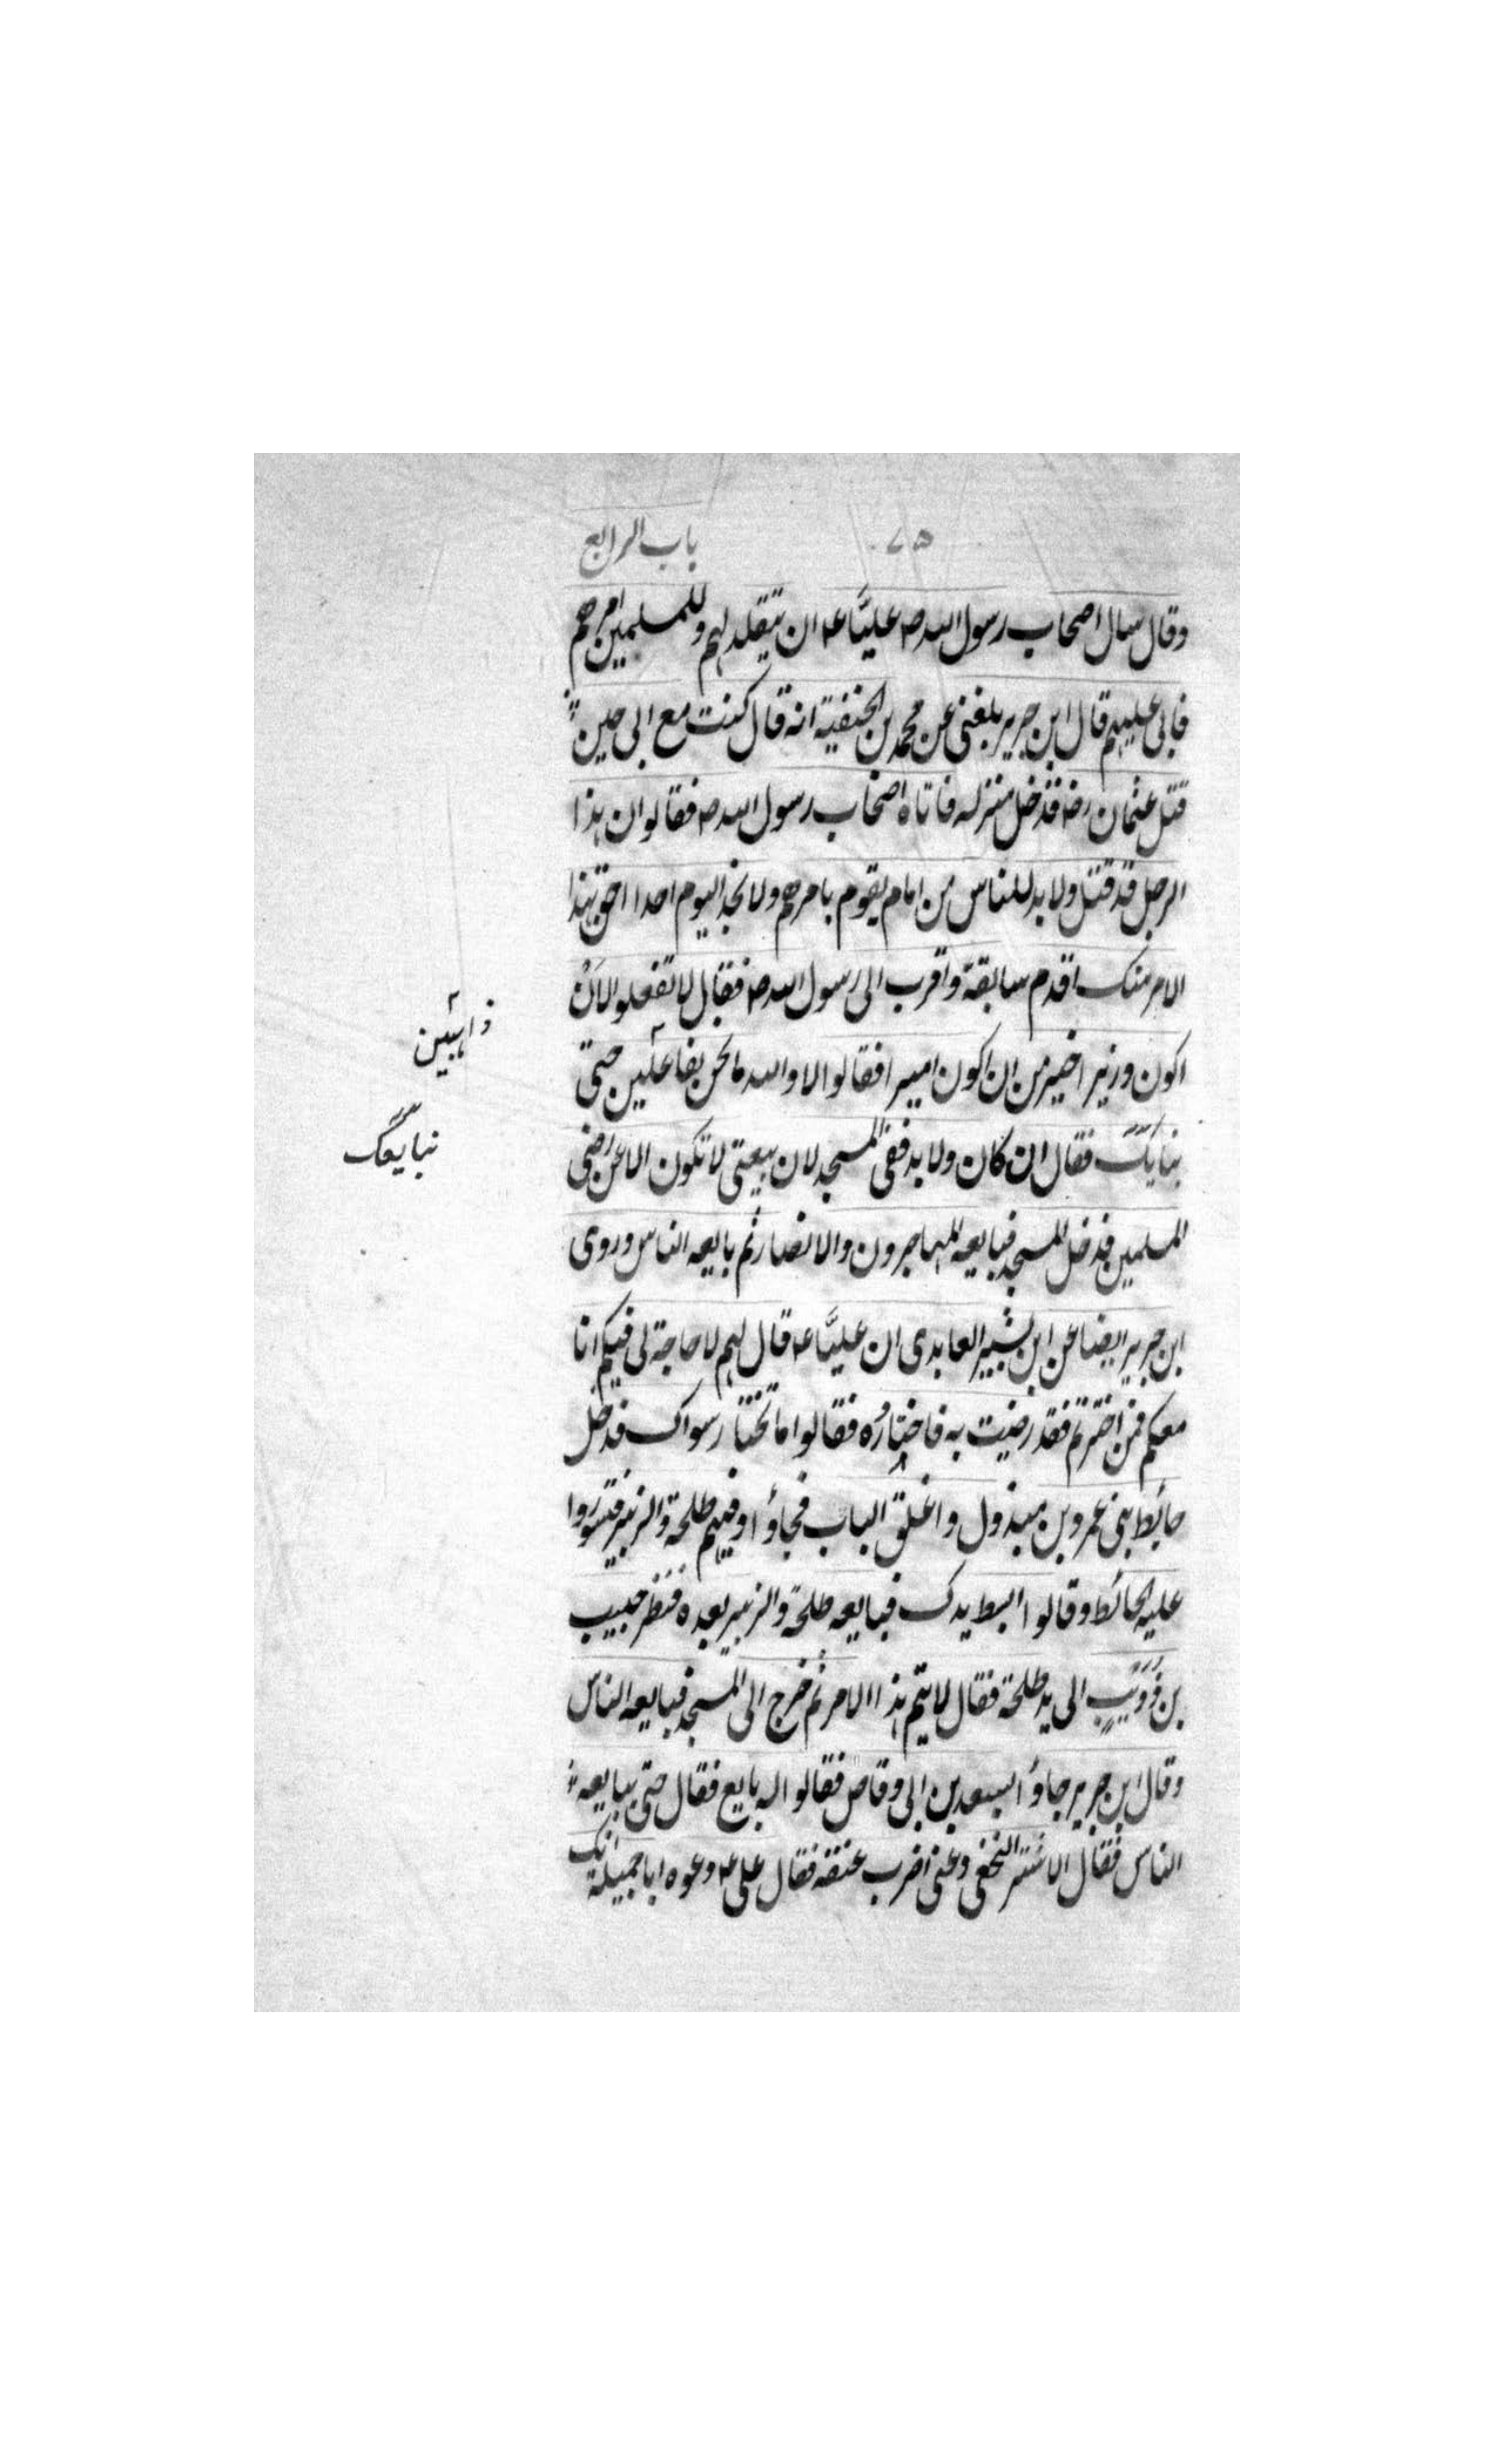 ٧٥ باب الرابع
وقال سال اصحاب رسول الله صه عليًّا عه ان يتقلد لهم وللمسلمين امرهم
فابى عليهم قال ابن جرير بلغنى عن محمد بن الحنفية انه قال كنت مع ابى حين
قتل عثمان رضه فدخل منزله فاتاه اصحاب رسول الله صه فقالوا ان هذا
الرجل قد قتل ولا بد للناس من امام يقوم بامرهم ولا نجد اليوم احدا احق بهذا
الامر منك اقدم سابقة واقرب الى رسول الله صه فقال لا تفعلوا لاَنْ
اكون وزيرا خير من ان اكون اميرا فقالوا لا والله ما نحن بفاعلين حتى
ذاهبين
نبايك فقال ان كان ولا بد ففى المسجد لان بيعتى لا تكون الا عن رضى
نبايعك
المسلمين فدخل المسجد فبايعه المهاجرون والانصار ثم بايعه الناس وروى
ابن جرير ايضا عن ابن بشير العابدى ان عليًّا عه قال لهم لا حاجة لى فيكم انا
معكم فمن اخترتم فقد رضيت به فاختاروُه فقالوا ما نختار سواك فدخل
حايط بنى عمرو بن مبذول واغلق الباب فجاؤا وفيهم طلحة والزبير فتسوّروا
عليه الحائط وقالوا ابسط يدك فبايعه طلحة والزبير بعده فنظر حبيب
بن ذُوَيبٍ الى يد طلحة فقال لا يتم هذا الامر ثم خرج الى المسجد فبايعه الناس
وقال ابن جرير جاؤا بسعد بن ابى وقاص فقالوا له بايع فقال حتى يبايعه
الناس فقال الاشتر النخعى دعنى اضرب عنقه فقال على عه دعوه ابا جميلة انك